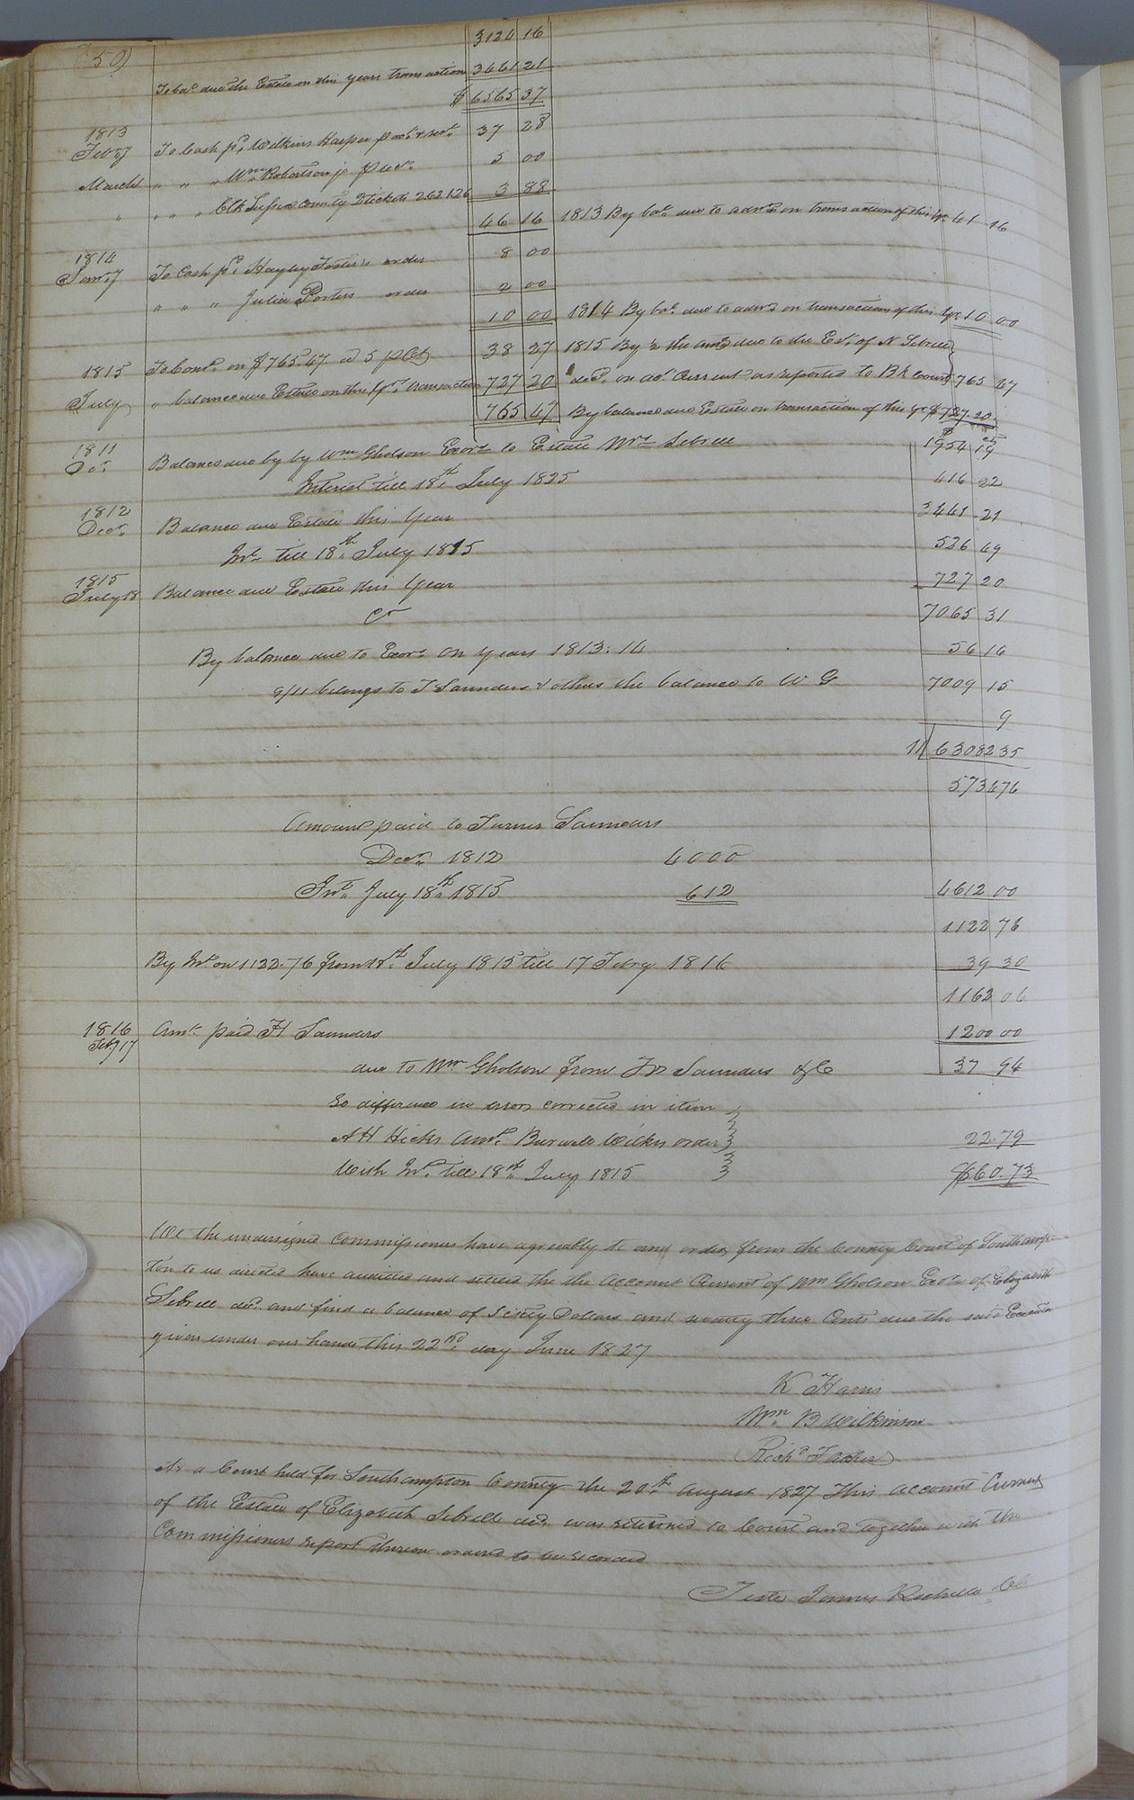 50)
3124 16
To bal. due the Estate on this years transaction 3441 21
$ 6565 37
1813
Feby To Cash pd. Wilkins Harper p acct. & rect. 37 28
March " " " Wm. Robertson jr p rect. 5 00
" " " " Clk Sussex County 2 tickets 262.126 3 88
46 16 1813 By bal. due to adm. on transaction of this yr. 46 16
1814
Jany To Cash pd. Hayley Fosters order 8 00
" " " Julia Porters order 2 00
10 00 1814 By bal. due to adm. on transaction of this yr. 10 00
1815 To Com. on $765.47 at 5 p Ct. 38 27 1815 By ½ the amt. due to the Est. of N Sebrell
July " balance due Estate on this yrs. transaction 727 20 decd. on act. Current as reported to Bk County 765 47
765 47 By balance due Estate on transaction of this yr $ 727.20
1811
Dec. Balance due by by Wm Gholson Exor. to Estate Mrs. Sebrell 1954 19
Interest till 18th July 1825 416 22
1812
Decr. Balance due Estate this Year 3441 21
Int. till 18th July 1815 526 49
1815
July 18 Balance due Estate this Year 727 20
Cr 7065 31
By balance due to Exor. on years 1813:14 56 16
9/11 belongs to T Saunders & others the balance to W G 7009 15
9
11/ 63082 35
5734 76
Amount paid to Turner Saunders
Decr. 1812 4000
Int. July 18th 1815 612 4612 00
1122 76
By Int. on 1122.76 from 18th July 1815 till 17 Feby 1816 39 30
1162 06
1816
Feby 17 Amt. paid H Saunders 1200 00
due to Wm Gholson from Saunders &C 37 94
So difference in errors corrected in item
A H Hicks Amt. Burwell Wilkes order
With Int. till 18th July 1815 22.79
$60.73
We the undersigned Commissioners have agreeably to any order from the County Court of Southamp-
ton to us directed have audited and settled the the Account Current of Wm Gholson Exor of Elizabeth
Sebrell decd. and find a balance of Sixty Dollars and seventy three Cents due the said Executor
given under our hands this 22nd day June 1827
K Harris
Wm B Wilkinson
Richd
At a Court held for Southampton County the 20th August 1827 This account Current
of the Estate of Elizabeth Sebrell decd. was returned to Court and together with the
Commissioners report thereon ordered to be recorded
Teste James Rochelle Cl